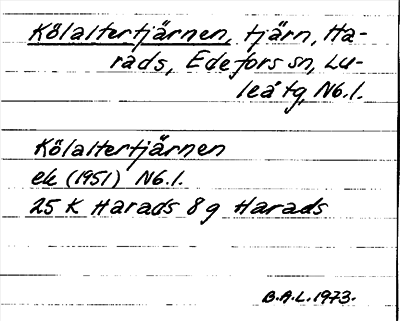 Kölaltertjärnen, tjärn, Ha-
rads, Edefors sn, Lu-
leå tg, Nb.l.
Kölaltertjärnen
ek (1951) Nb.l.
25 K Harads 8g Harads
B.A.L. 1973.